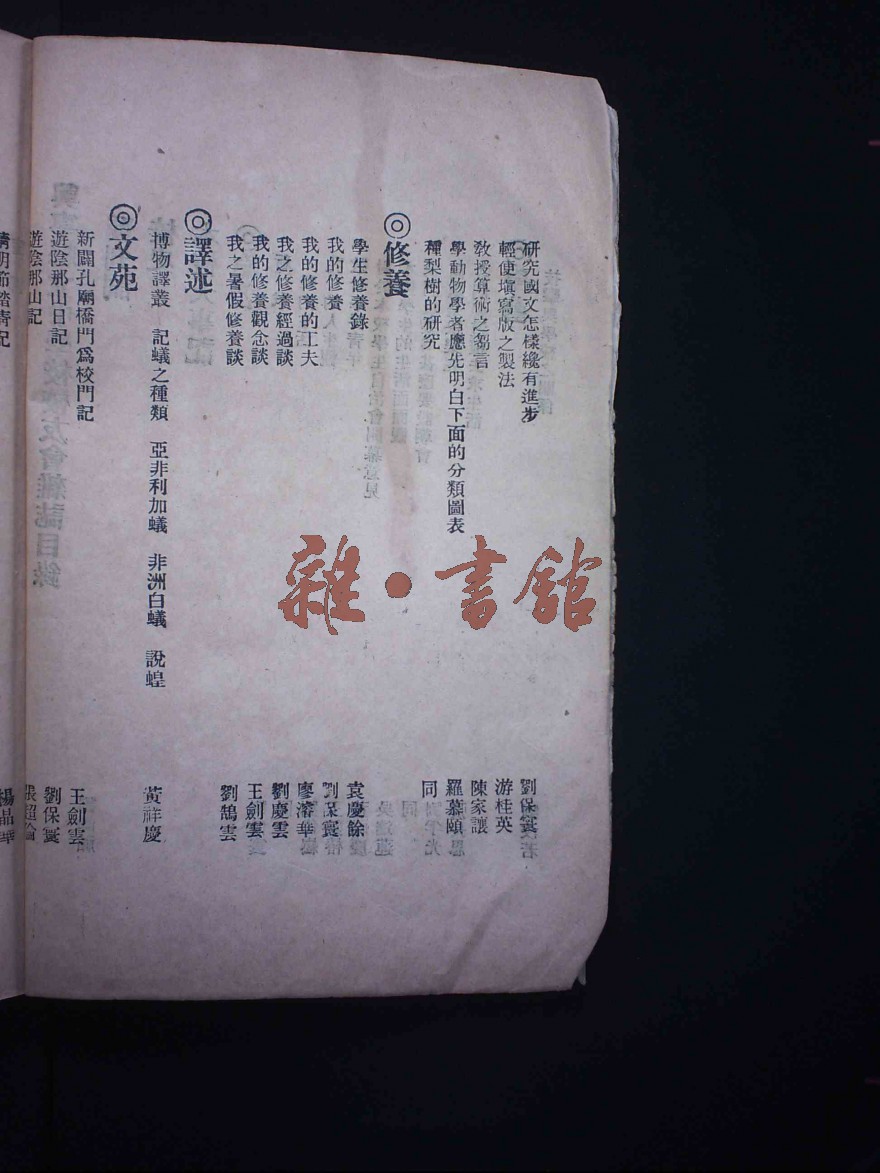 研究國文怎樣纔有進步　劉保寰
輕便塡寫版之製法　游桂英
敎授算術之芻言　陳家讓
學動物學者應先明白下面的分類圖表　羅慕頤
種梨樹的研究　同
◎修養
學生修養錄　袁慶餘
我的修養　劉保寰
我的修養的工夫　廖濬華
我之修養經過談　劉慶雲
我的修養觀念談　王劍雲
我之暑假修養談　劉鵠雲
◎譯述
博物譯叢　記蟻之種類　亞非利加蟻　非洲白蟻　說蝗　黃祥慶
◎文苑
新闢孔廟橋門爲校門記　王劍雲
遊陰那山日記　劉保寰
遊陰那山記　張超
清明節踏靑記　楊晶華
雜·書館